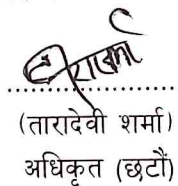 (तारादेवी शर्मा)
अधिकृत (छटौं)